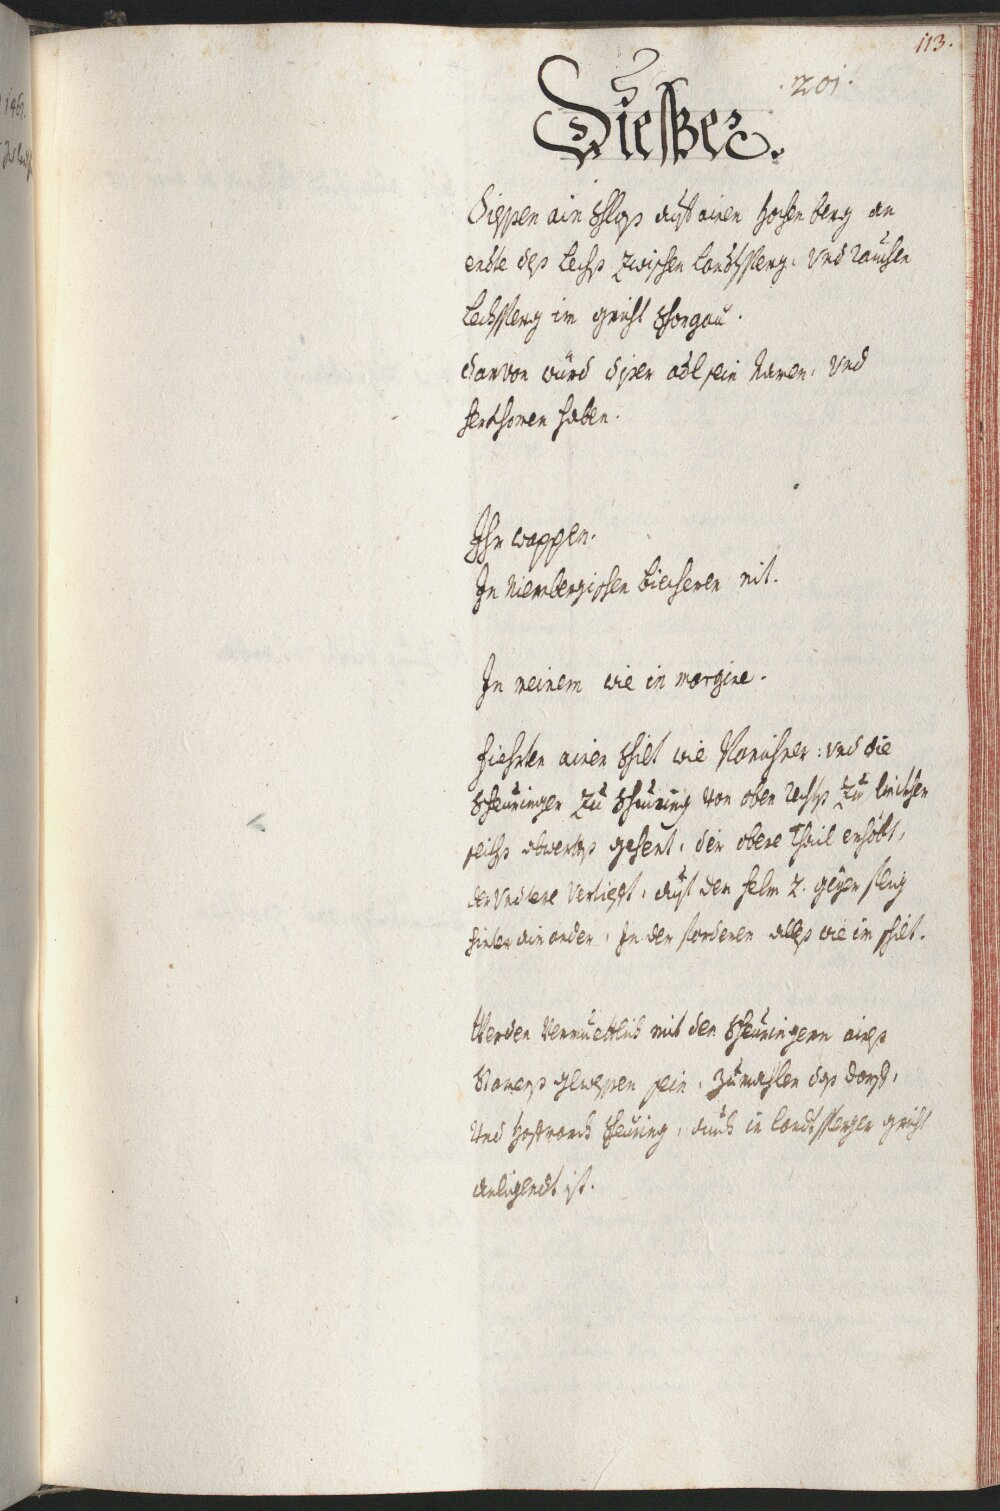 113.
201.
Dießer.
Diessen ain Schloß auf ainen hohen berg an
endte deß Lechß zwischen Landtsperg. Und rauhen
Lechsperg im gricht Schongau.
darvon würd diser adl sein Namen. Und
herkhomen haben.
Ihr wappen.
In Niernbergischen biecheren nit.
In meinem wie in margine.
fiehrten ainen Schilt wie : und die
Scheuringer zu Scheuring von oben rechtß zu linckhen
seithß abwertß gekert, der obere Thail erhöht,
der Undtere vertiefft, auf den helm 2. geger flerg
hinter ain ander, In der forderen alleß wie im schilt.
Werden Vermuettlich mit den Scheuringern aineß
Stameß gewessen sein, zumahlen das dorf,
Und hofmarch Scheuring, auch in Landtsperger gricht
anligendt ist.